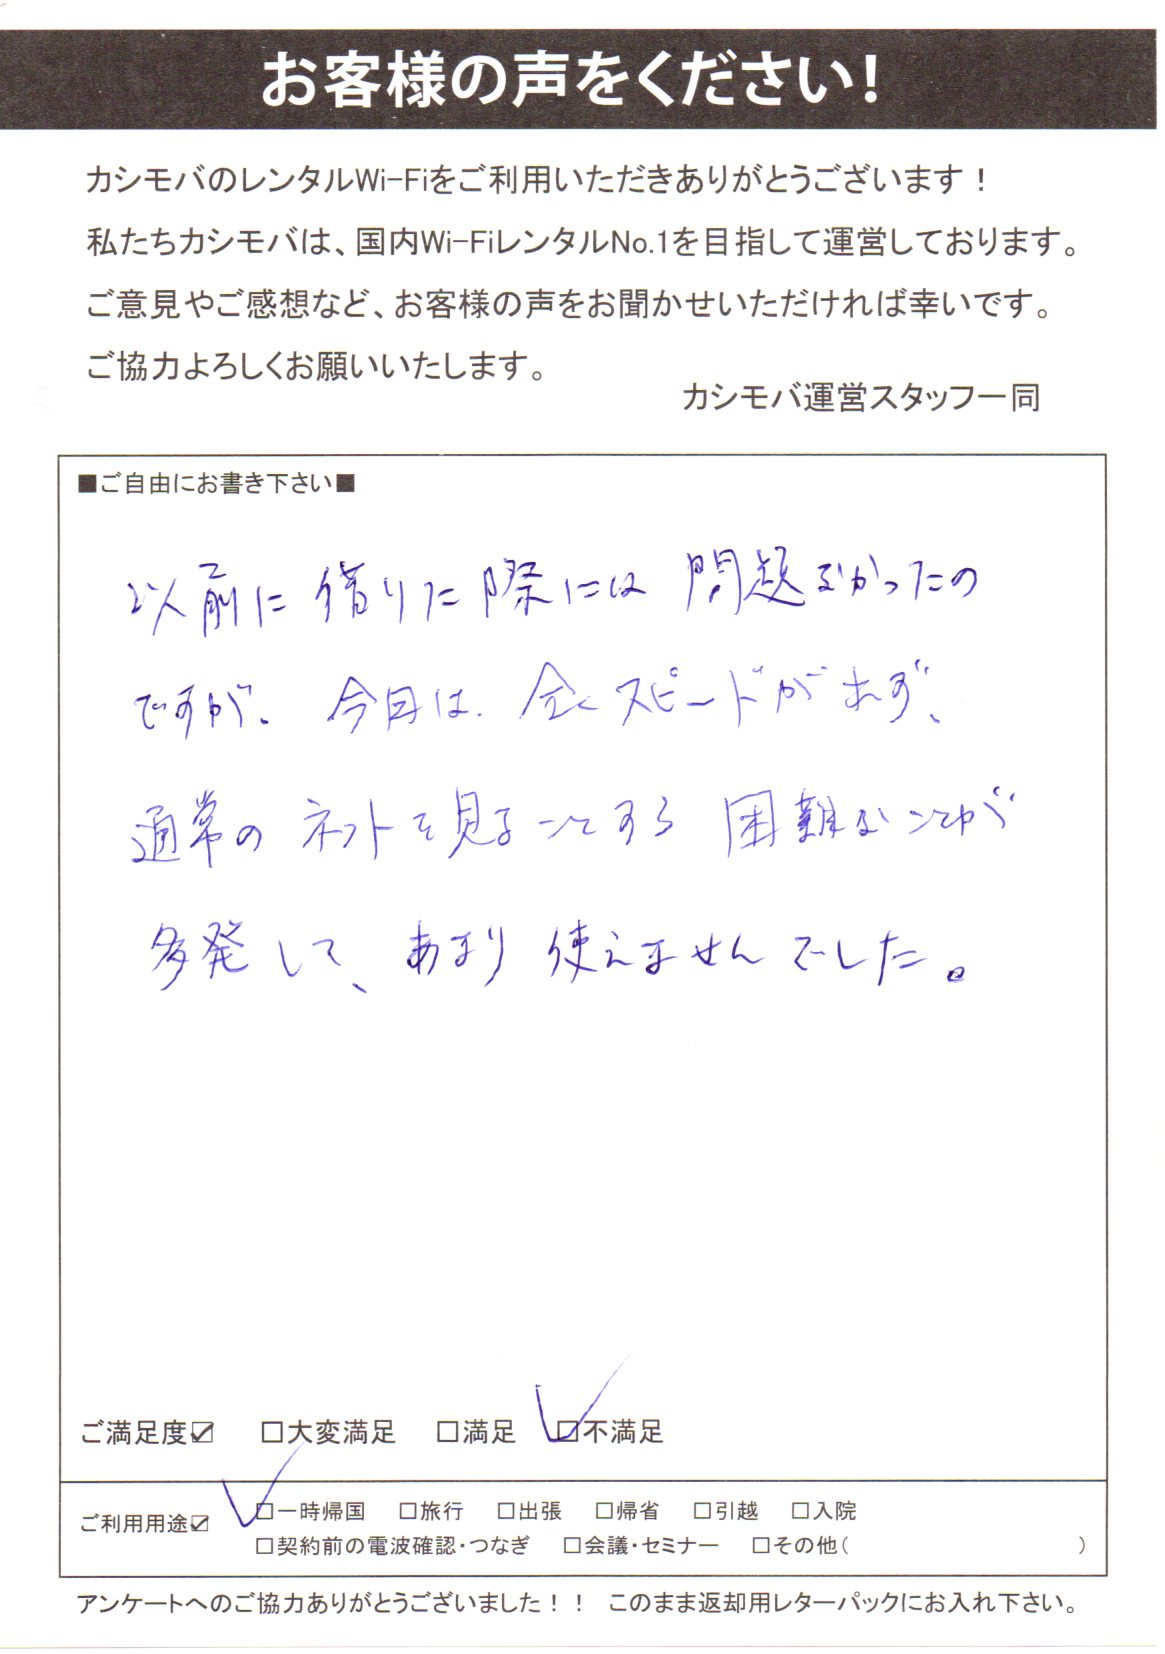 お客様の声をください!
カシモバのレンタルWi-Fiをご利用いただきありがとうございます！
私たちカシモバは、国内Wi-FiレンタルNo.1を目指して運営しております。
ご意見やご感想など、お客様の声をお聞かせいただければ幸いです。
ご協力よろしくお願いいたします。
カシモバ運営スタッフ一同
■ご自由にお書き下さい■
以前に借りた際には問題なかったの
ですが、今回は、全くスピードがれず、
通常のネットを見ることすら困難なことが
多発して、あまり使えませんでした。
ご満足度☑ □大変満足 □満足 ☑不満足
ご利用用途☑ ☑一時帰国 □旅行 □出張 □帰省 □引越 □入院
□契約前の電波確認・つなぎ □会議・セミナー □その他( )
アンケートへのご協力ありがとうございました！！ このまま返却用レターパックにお入れ下さい。